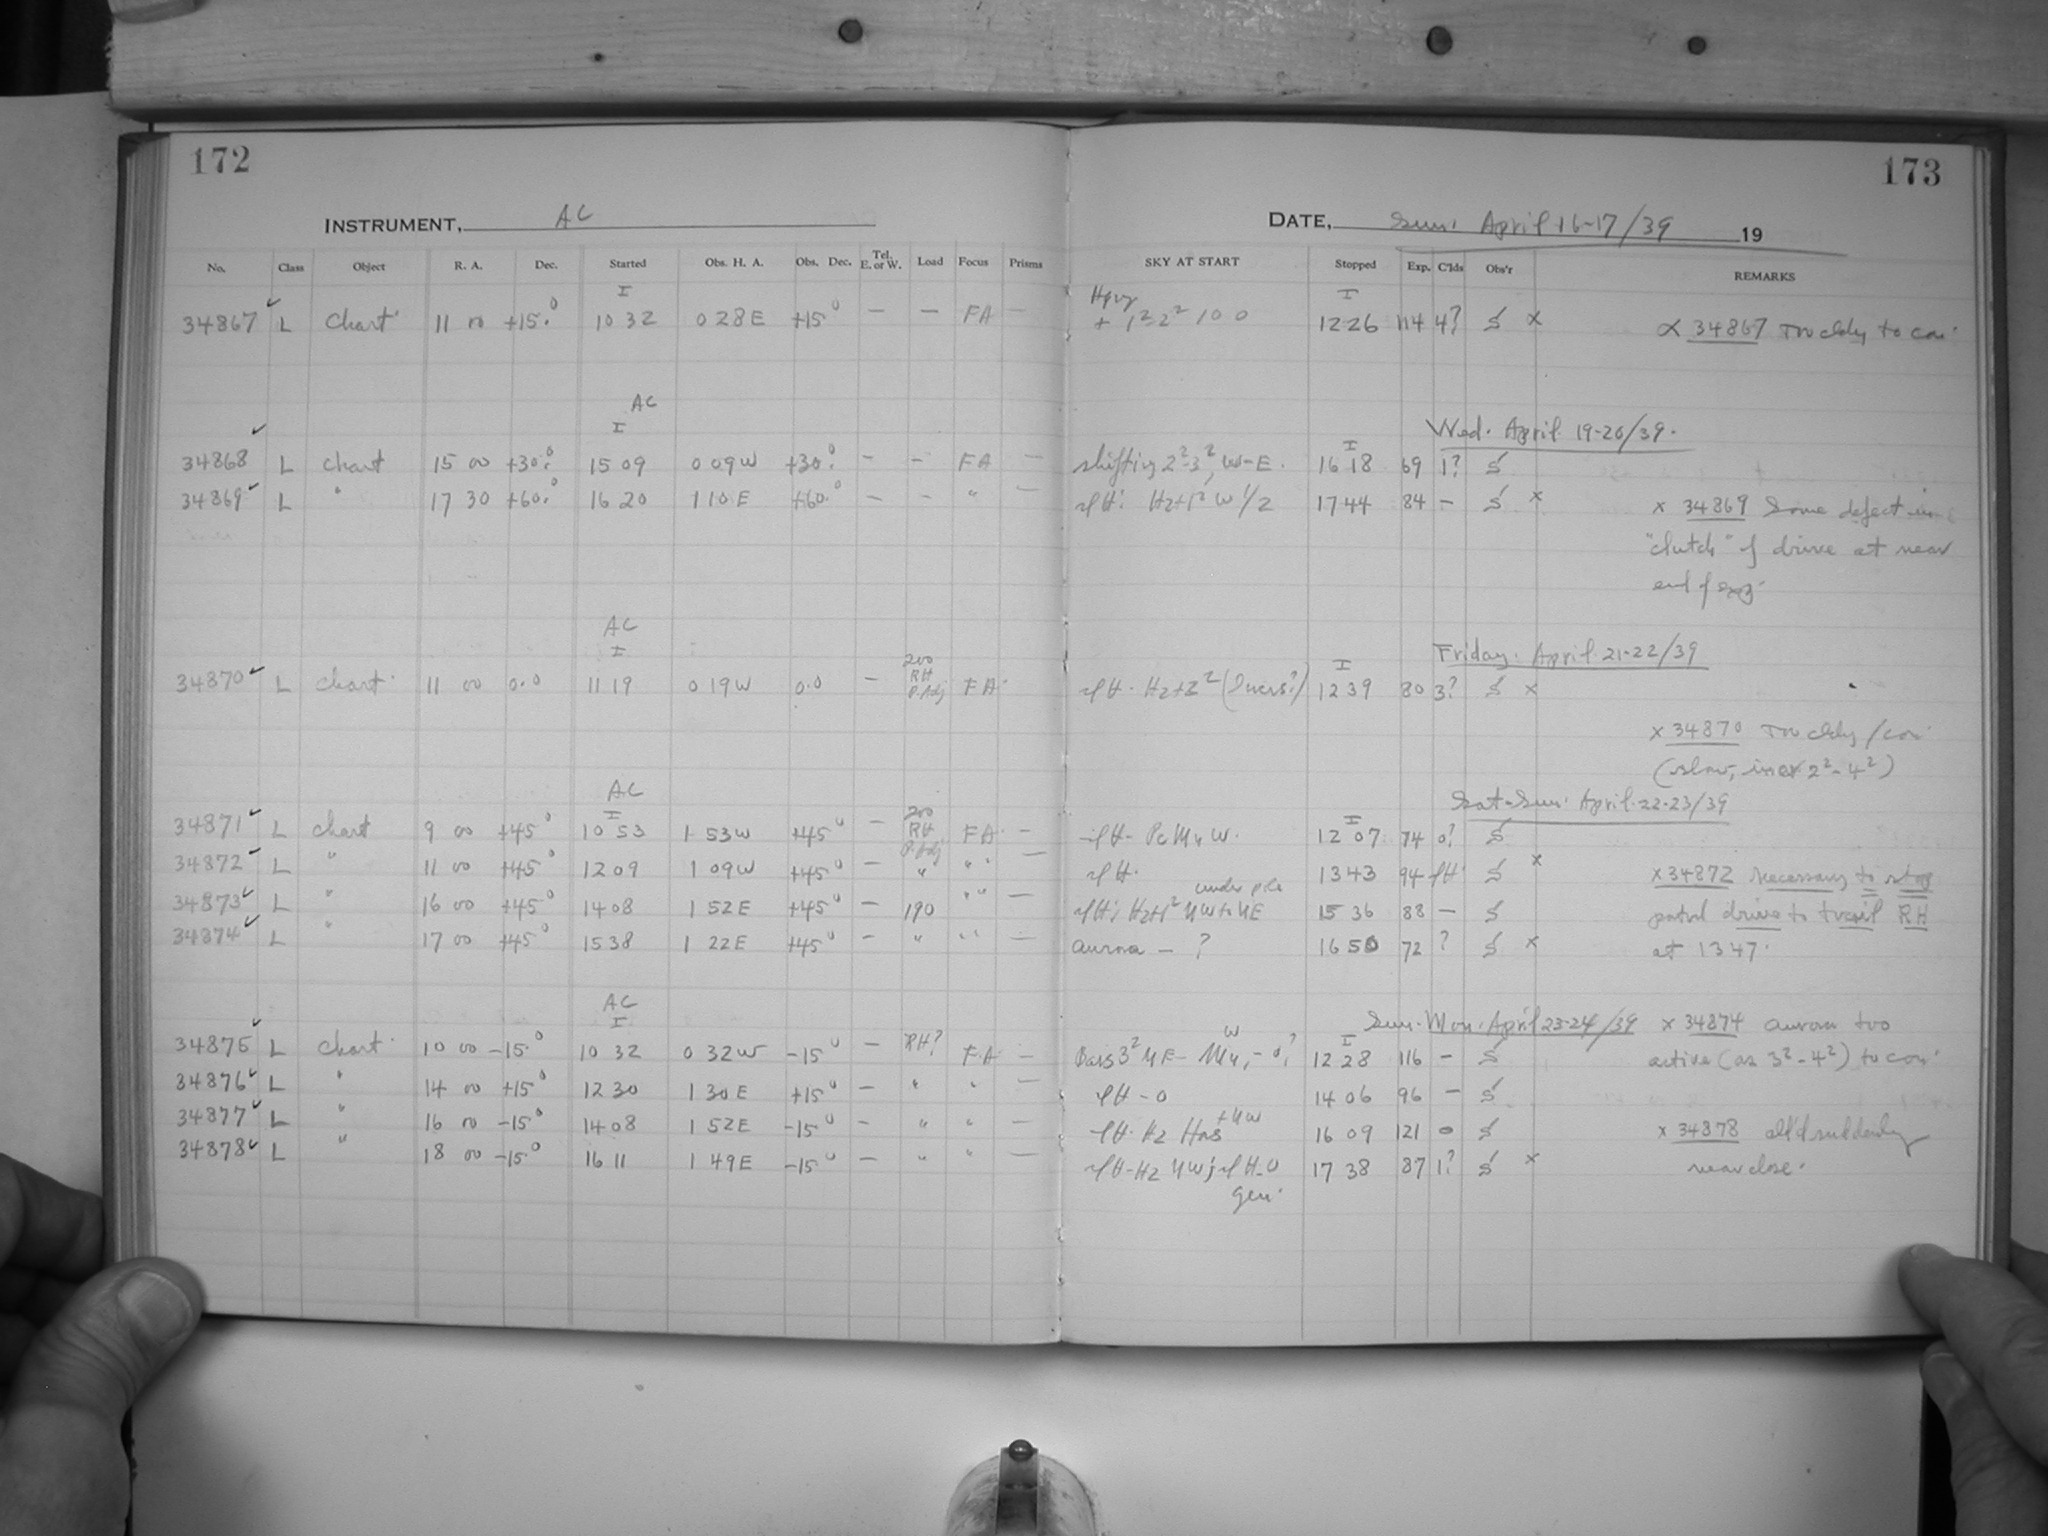 172
173
INSTRUMENT, AC
DATE, Sun. April 16-17/39 19
No. Class Object R. A. Dec. Started Obs. H. A. Obs. Dec. Tel. E. or W. Load Focus Prisms SKY AT START Stopped Exp. C'lds Obs'r REMARKS
I I
34867 ✓ L Chart 11 00 +15.0 10 32 0 28 E +15° — — FA — + 1²-2² 100 12 26 114 4? S × 34867 Too cldy to con.
AC
I Wed. April 19-20/39.
34868 ✓ L Chart 15 00 +30.0 15 09 0 09 W +30.0 — — FA — shifting 2²-3², W-E. 16 18 69 1? S
34869 ✓ L " 17 30 +60.0 16 20 1 10 E +60.0 — — " — W 1/2 17 44 84 — S × × 34869 Some defect in
"clutch" of drive at near
end of exp.
AC
I Friday. April 21-22/39
34870 ✓ L Chart 11 00 0.0 11 19 0 19 W 0.0 — 200 RH P. Adj FA 12 39 80 3? S ×
× 34870 Too cldy/con.
(slow, incr 2²-4²)
AC
I Sat-Sun. April 22-23/39
34871 ✓ L Chart 9 00 +45° 10 53 1 53 W +45° — 200 RH P. Adj FA — W. 12 07 74 0? S
34872 ✓ L " 11 00 +45° 12 09 1 09 W +45° — " " " — 13 43 94 S × × 34872 necessary to stop
34873 ✓ L " 16 00 +45° 14 08 1 52 E +45° — 190 " " — under pole 15 36 88 — S patrol drive to RH
34874 ✓ L " 17 00 +45° 15 38 1 22 E +45° — " " " — aurora — ? 16 50 72 ? S × at 1347.
AC
I Sun. Mon. April 23-24/39 × 34874 aurora too
34875 ✓ L Chart 10 00 -15.0 10 32 0 32 W -15° — RH? FA — 12 28 116 — S active (as 3²-4²) to con.
34876 ✓ L " 14 00 +15° 12 30 1 30 E +15° — " " — 14 06 96 — S
34877 ✓ L " 16 00 -15° 14 08 1 52 E -15° — " " — 16 09 121 0 S × 34878 suddenly
34878 ✓ L " 18 00 -15.0 16 11 1 49 E -15° — " " — gen. 17 38 87 1? S × near close.